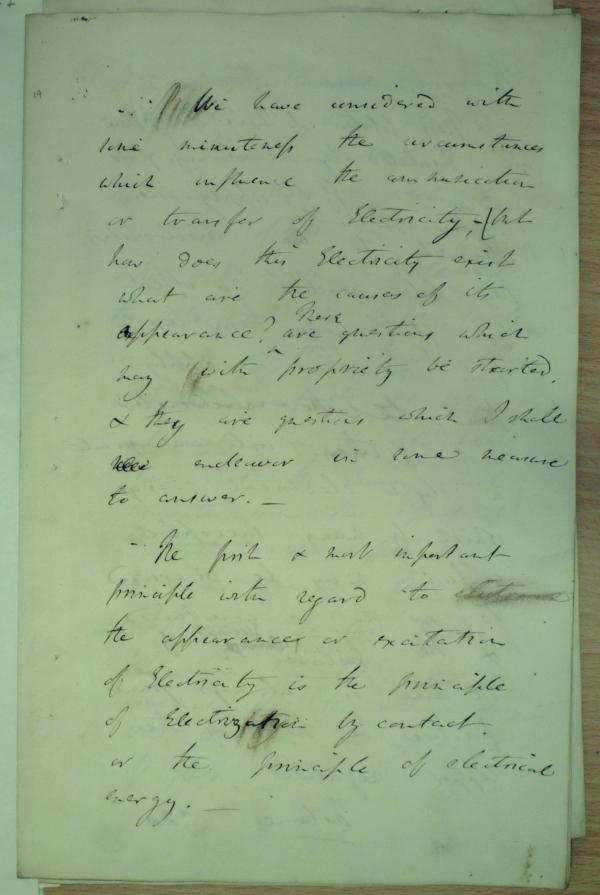 We have considered with
some minuteness the circumstances
which influence the communication
or transfer of Electricity, - (but
how does this Electricity exist
what are the causes of its
appearance? These are questions which
may with propriety be started,
& they are questions which I shall
endeavor in some measure
to answer. _
- The first & most important
principle with regard to
the appearances or excitation
of Electricity is the principle
of Electrization by contact.
or the principle of electrical
energy. - _